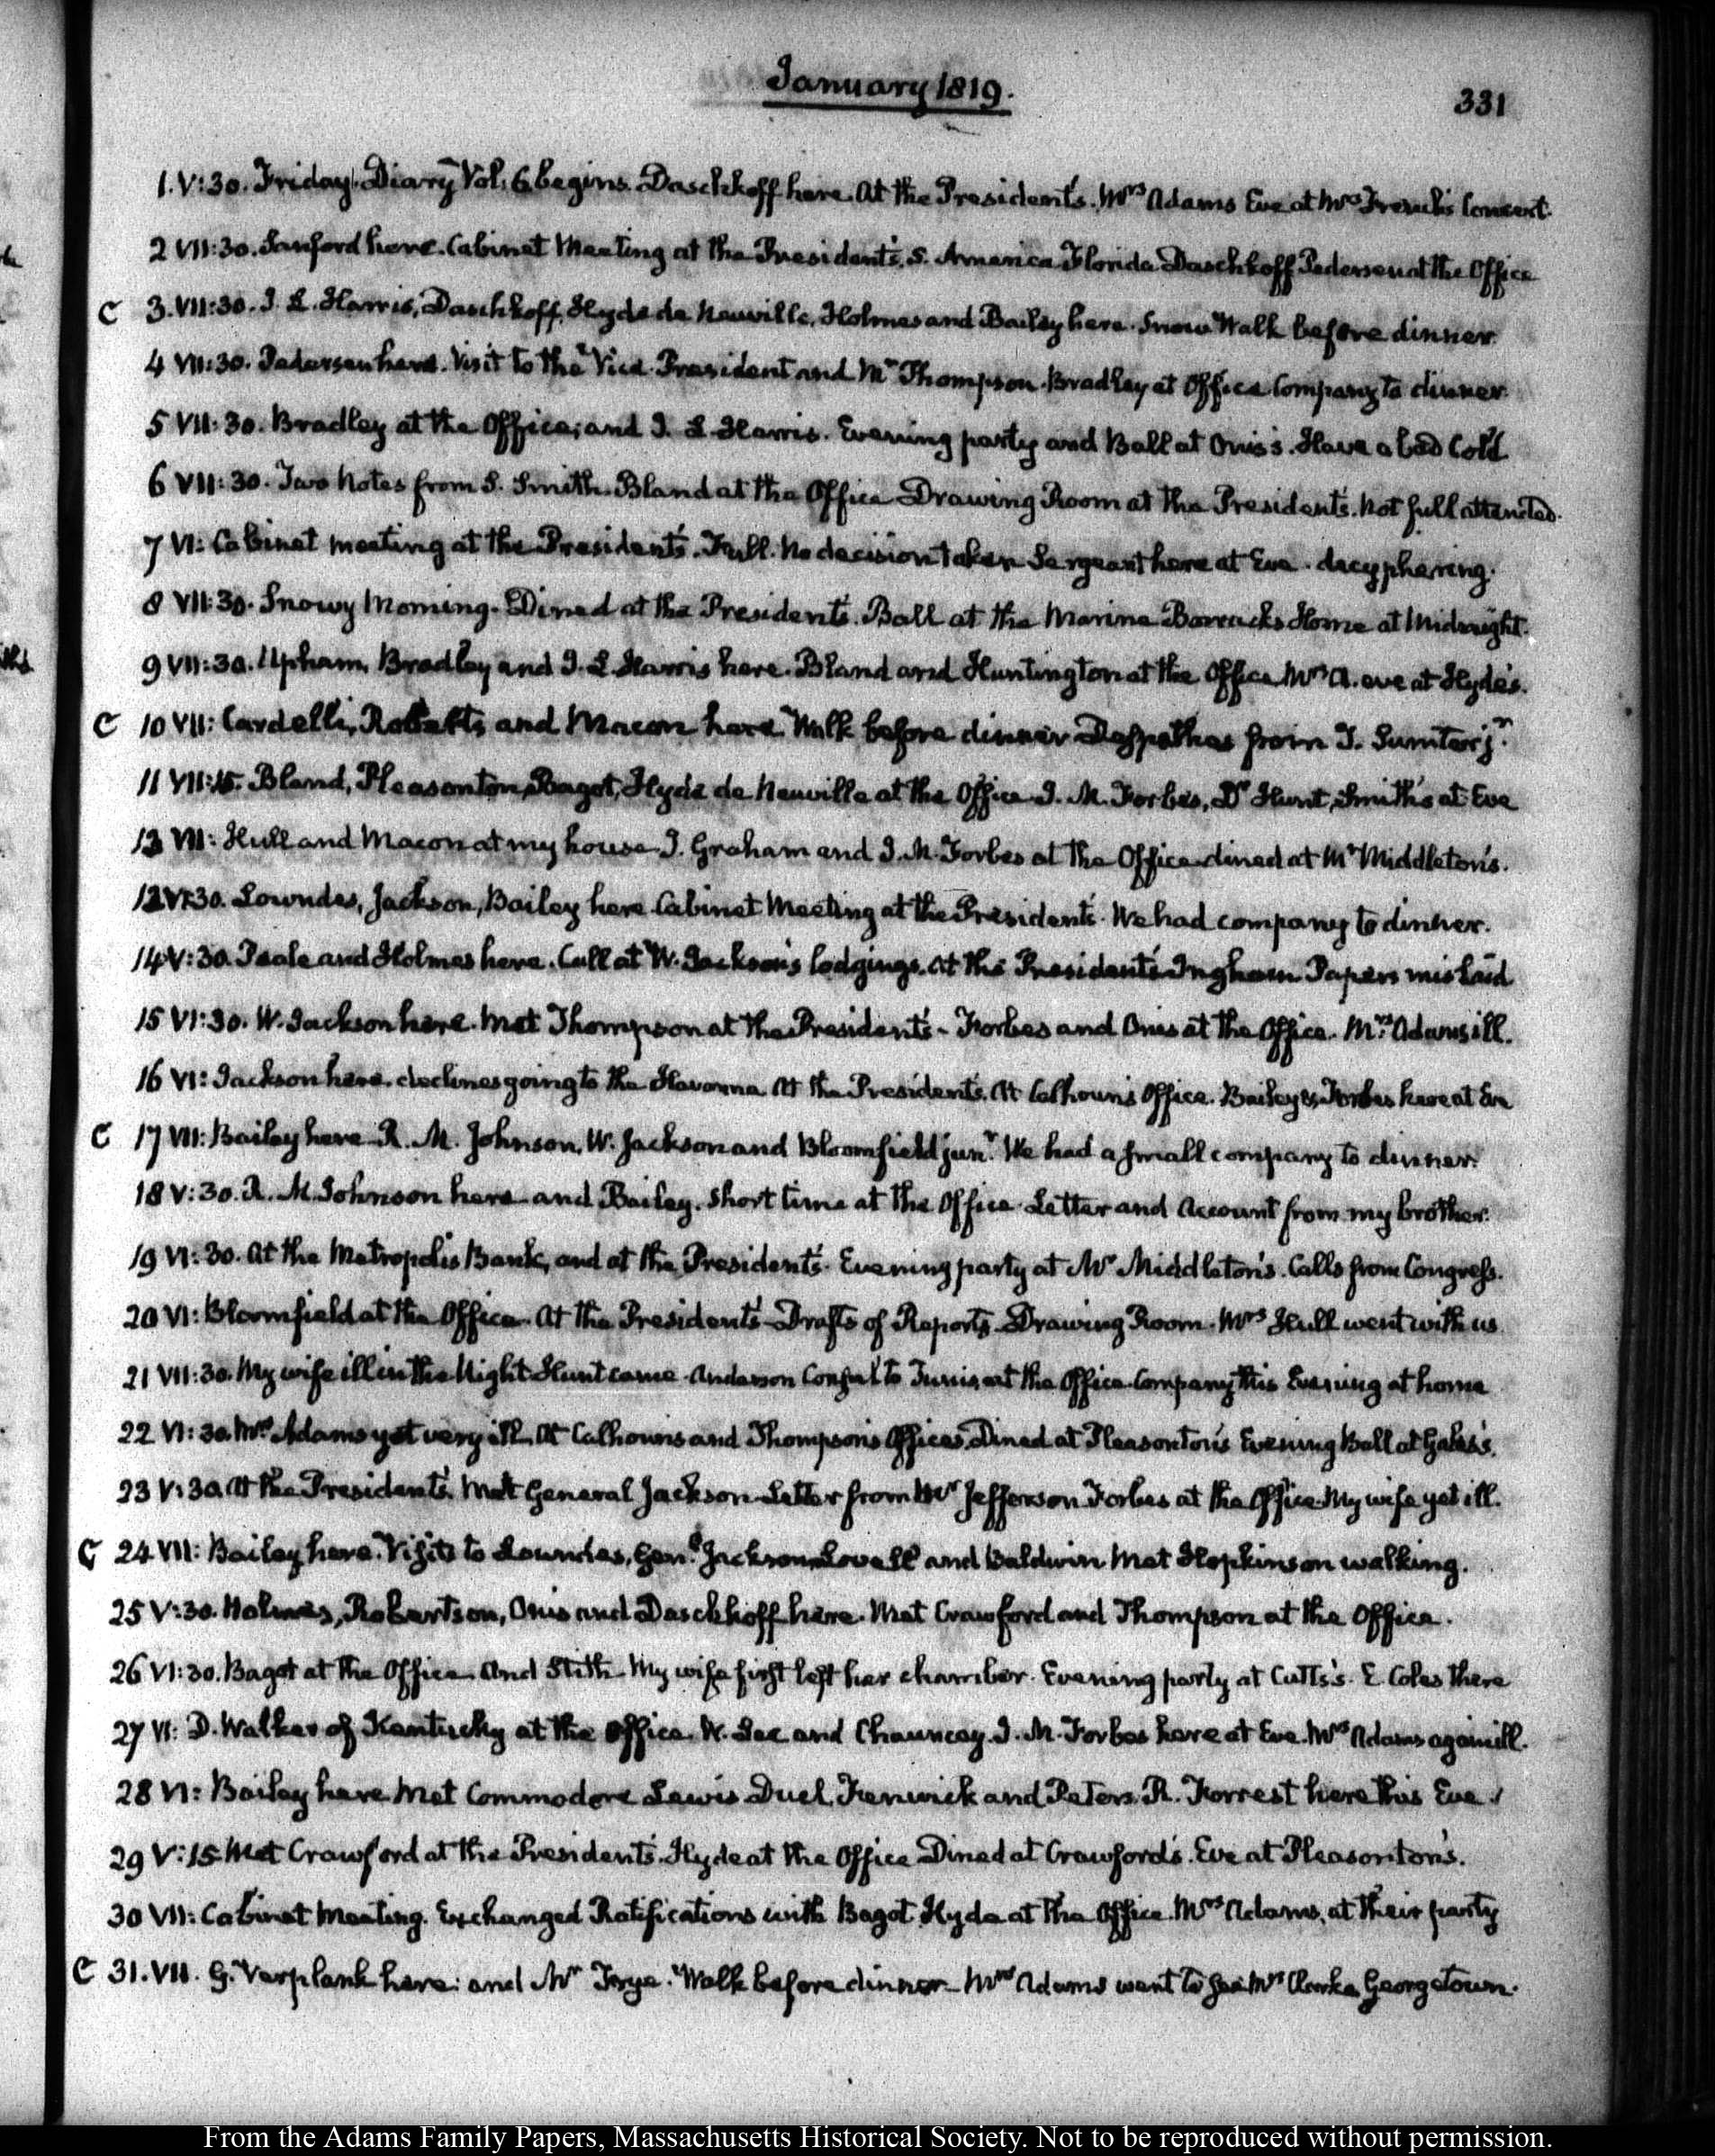 January 1819.
331
1. V:30. Friday. Diary Vol. 6 begins. Daschkoff here. At the President's. Mrs Adams Eve at Mrs French's Concert.
2 VII:30. Sanford here. Cabinet Meeting at the President's. S. America Florida Daschkoff Pedersen at the Office
C 3. VII:30. J. L. Harris, Daschkoff, Hyde de Neuville, Holmes and Bailey here. Snow. Walk before dinner
4 VII:30. Pedersen here. Visit to the Vice-President and Mr Thompson. Bradley at Office Company to dinner
5 VII:30. Bradley at the Office; and J. L. Harris. Evening party and Ball at Onis's. Have a bad Cold.
6 VII:30. Two Notes from S. Smith. Bland at the Office Drawing Room at the President's. Not full attended.
7 VI: Cabinet meeting at the President's. Full. No decision taken Sergeant here at Eve. decyphering.
8 VII:30. Snowy Morning. Dined at the President's. Ball at the Marine Barracks Home at Midnight.
9 VII:30. Upham, Bradley and J. L. Harris here. Bland and Huntington at the Office Mrs A. eve at Hyde's.
C 10 VII: Cardelli, Roberts and Macon here. Walk before dinner Despatches from T. Sumter jr.
11 VII:15. Bland, Pleasonton, Bagot, Hyde de Neuville at the Office J. M. Forbes, Dr Hunt, Smith's at Eve
12 VII: Hull and Macon at my house J. Graham and J. M. Forbes at the Office dined at Mr Middleton's.
13 VI:30. Lowndes, Jackson, Bailey here Cabinet Meeting at the President's. We had company to dinner.
14 V:30. Peale and Holmes here. Call at W. Jackson's lodgings. At the President's Ingham Papers mislaid
15 VI:30. W. Jackson here. Met Thompson at the President's - Forbes and Onis at the Office. Mrs Adams ill.
16 VI: Jackson here. declines going to the Havanna At the President's. At Calhoun's Office. Bailey & Forbes here at Eve
C 17 VII: Bailey here R. M. Johnson, W. Jackson and Bloomfield junr. We had a small company to dinner.
18 V:30. R. M. Johnson here and Bailey. Short time at the Office. Letter and Account from my brother.
19 VI:30. At the Metropolis Bank, and at the President's. Evening party at Mr Middleton's. Calls from Congress.
20 VI: Bloomfield at the Office. At the President's Drafts of Reports Drawing Room. Mrs Hull went with us
21 VII:30. My wife ill in the Night Hunt came. Anderson Consul to Tunis at the Office. Company this Evening at home
22 VI:30. Mrs Adams yet very ill. At Calhoun's and Thompson's Offices. Dined at Pleasonton's Evening Ball at Gales's.
23 V:30. At the President's. Met General Jackson Letter from Mr Jefferson Forbes at the Office. My wife yet ill.
C 24 VII: Bailey here. Visits to Lowndes, Genl. Jackson, Lovell and Baldwin Met Hopkinson walking.
25 V:30. Holmes, Robertson, Onis and Daschkoff here. Met Crawford and Thompson at the Office.
26 VI:30. Bagot at the Office and Stith My wife first left her chamber. Evening party at Cutts's. E. Coles there
27 VI: D. Walker of Kentucky at the Office. W. Lee and Chauncey. J. M. Forbes here at Eve. Mrs Adams again ill.
28 VI: Bailey here Met Commodore Lewis Duel, Fenwick and Peters. R. Forrest here this Eve.
29 V:15 Met Crawford at the President's. Hyde at the Office Dined at Crawford's. Eve at Pleasonton's.
30 VII: Cabinet Meeting. Exchanged Ratifications with Bagot Hyde at the Office. Mrs Adams, at their party
C 31. VII. G. Verplank here: and Mr Frye. Walk before dinner Mrs Adams went to see Mrs Clarke Georgetown.
From the Adams Family Papers, Massachusetts Historical Society. Not to be reproduced without permission.